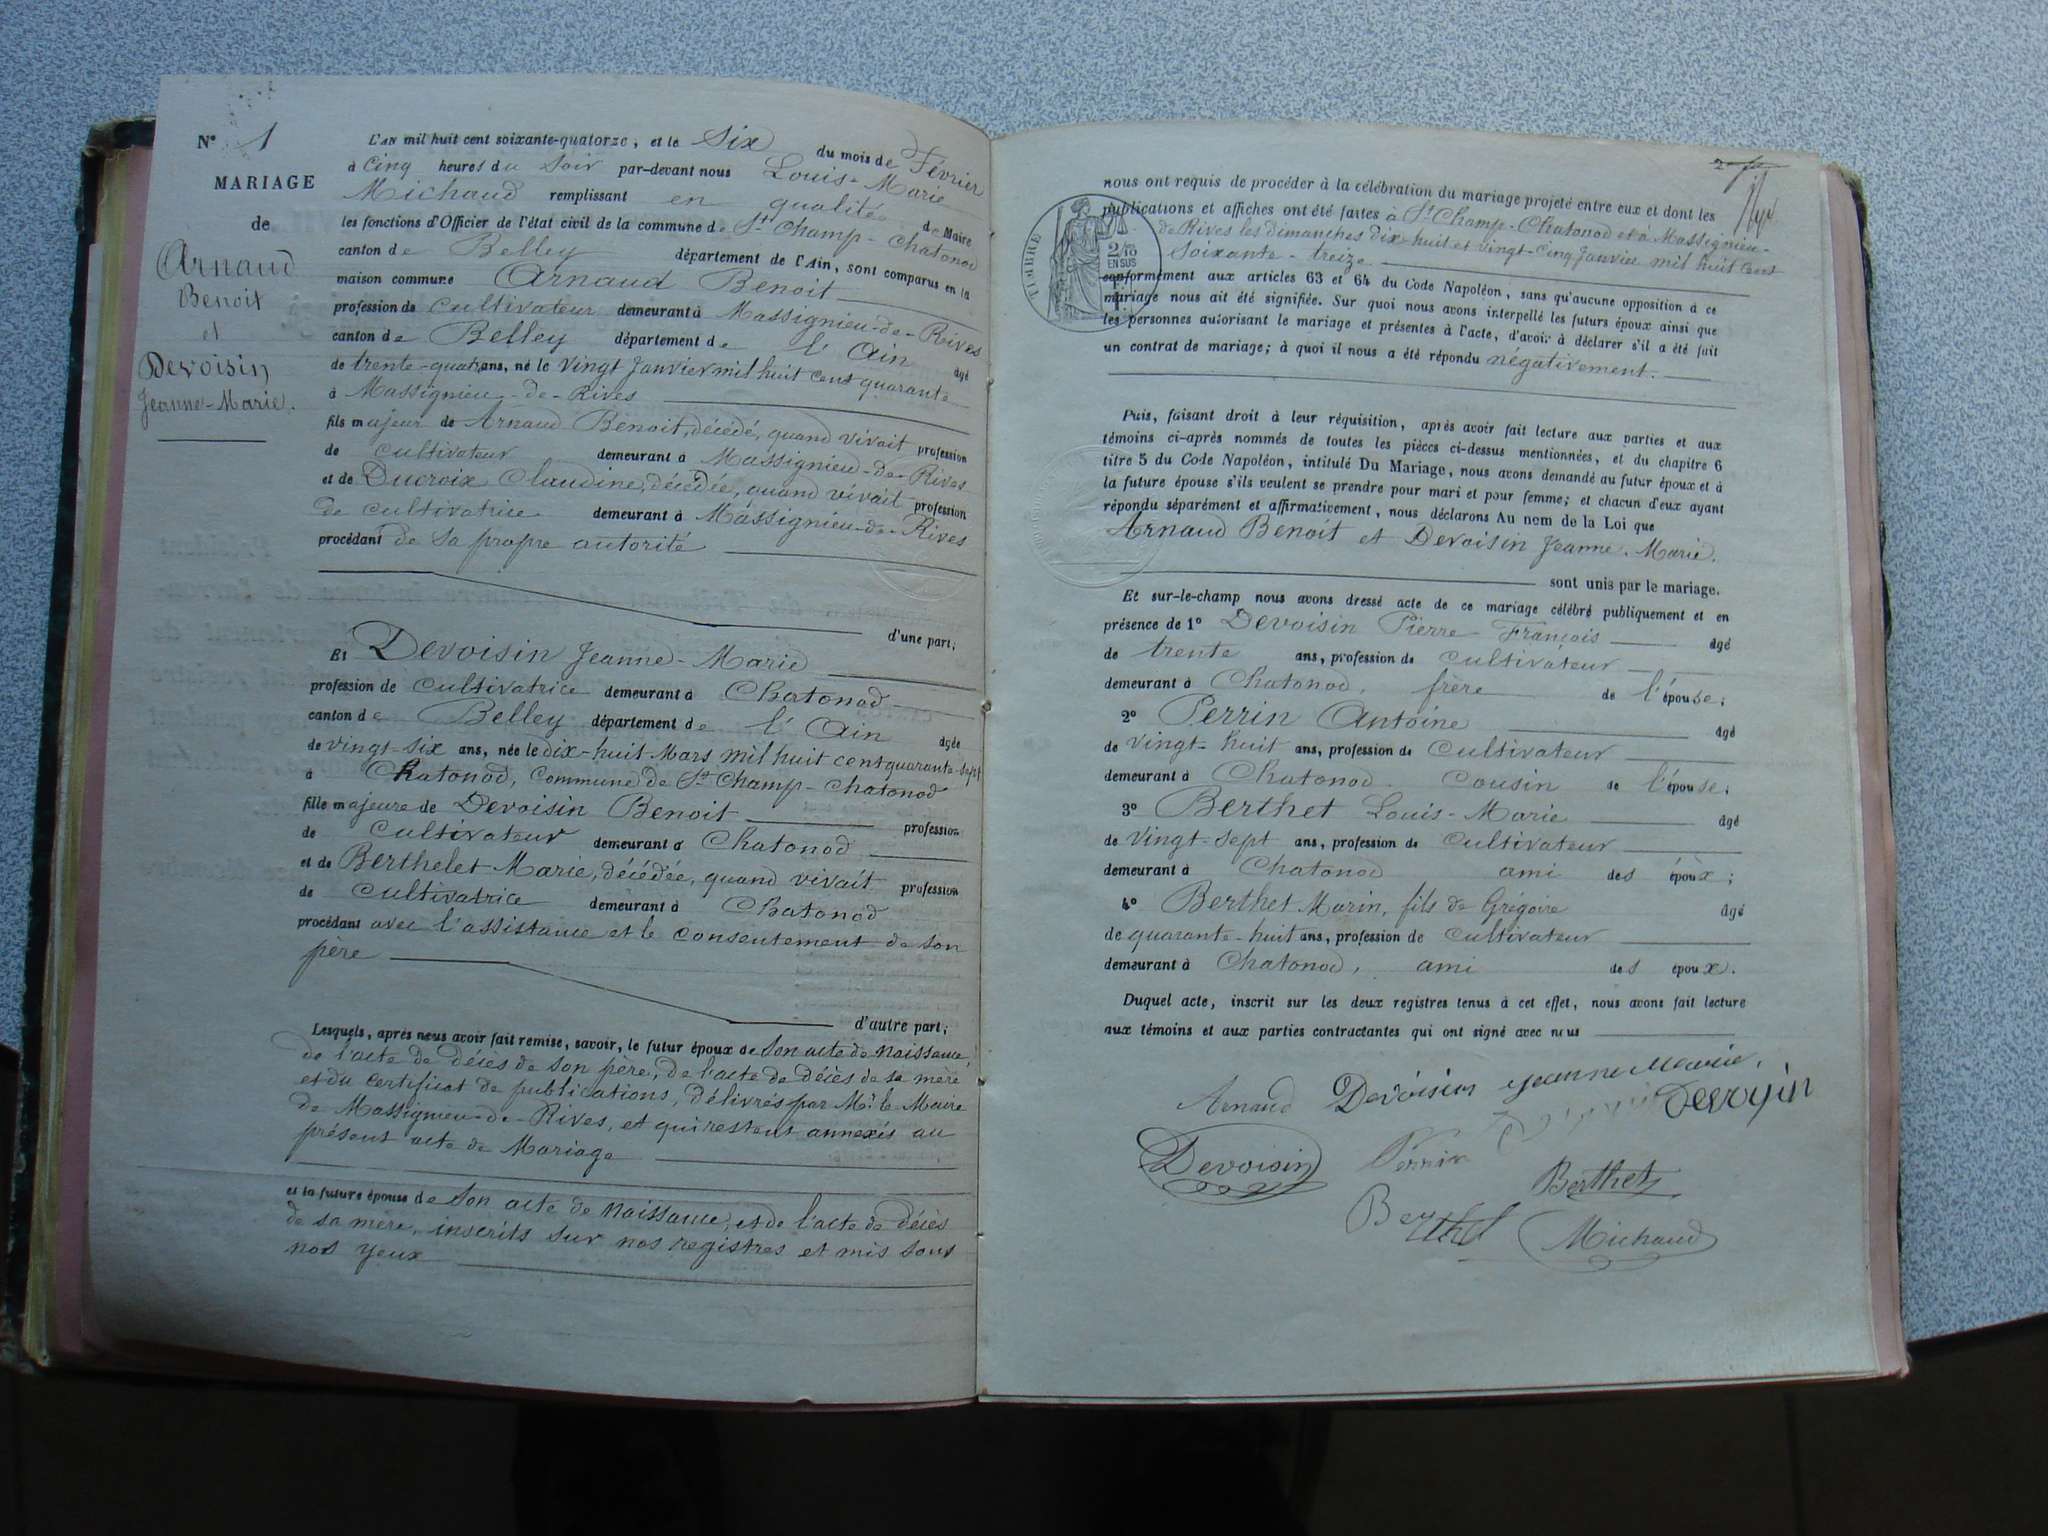 N° 1
MARIAGE
de
Arnaud
Benoit
et
Devoisin
Jeanne-Marie.
L'AN mil huit cent soixante-quatorze, et le Six du mois de Février
à Cinq heures du Soir par-devant nous Louis-Marie
Michaud remplissant en qualité de Maire
les fonctions d'Officier de l'état civil de la commune de St Champ-Chatonod
canton de Belley département de l'Ain, sont comparus en la
maison commune Arnaud Benoit
profession de Cultivateur demeurant à Massignieu-de-Rives
canton de Belley département de l'Ain âgé
de trente-quatre ans, né le Vingt Janvier mil huit cent quarante
à Massignieu-de-Rives
fils majeur de Arnaud Benoit, décédé, quand vivait profession
de Cultivateur demeurant à Massignieu-de-Rives
et de Ducroix Claudine, décédée, quand vivait profession
de cultivatrice demeurant à Massignieu-de-Rives
procédant de sa propre autorité
d'une part;
Et Devoisin Jeanne-Marie
profession de Cultivatrice demeurant à Chatonod
canton de Belley département de l'Ain âgée
de vingt-six ans, née le dix-huit Mars mil huit cent quarante-sept
à Chatonod, Commune de St Champ-Chatonod
fille majeure de Devoisin Benoit profession
de Cultivateur demeurant à Chatonod
et de Berthelet Marie, décédée, quand vivait profession
de Cultivatrice demeurant à Chatonod
procédant avec l'assistance et le consentement de son
père
d'autre part;
Lesquels, après nous avoir fait remise, savoir, le futur époux de Son acte de Naissance,
de l'acte de décès de son père, de l'acte de décès de sa mère
et du certificat de publications, délivrés par Mr le Maire
de Massignieu-de-Rives, et qui restent annexés au
présent acte de Mariage
et la future épouse de Son acte de Naissance, et de l'acte de décès
de sa mère, inscrits sur nos registres et mis sous
nos yeux
nous ont requis de procéder à la célébration du mariage projeté entre eux et dont les
publications et affiches ont été faites à St Champ-Chatonod et à Massignieu-
de Rives les dimanches dix-huit et vingt-cinq Janvier mil huit cent
Soixante-treize
TIMBRE
2/10
EN SUS
conformément aux articles 63 et 64 du Code Napoléon, sans qu'aucune opposition à ce
mariage nous ait été signifiée. Sur quoi nous avons interpellé les futurs époux ainsi que
les personnes autorisant le mariage et présentes à l'acte, d'avoir à déclarer s'il a été fait
un contrat de mariage; à quoi il nous a été répondu négativement.
Puis, faisant droit à leur réquisition, après avoir fait lecture aux parties et aux
témoins ci-après nommés de toutes les pièces ci-dessus mentionnées, et du chapitre 6
titre 5 du Code Napoléon, intitulé Du Mariage, nous avons demandé au futur époux et à
la future épouse s'ils veulent se prendre pour mari et pour femme; et chacun d'eux ayant
répondu séparément et affirmativement, nous déclarons Au nom de la Loi que
Arnaud Benoit et Devoisin Jeanne-Marie.
sont unis par le mariage.
Et sur-le-champ nous avons dressé acte de ce mariage célébré publiquement et en
présence de 1° Devoisin Pierre François âgé
de trente ans, profession de Cultivateur
demeurant à Chatonod, frère de l'épouse;
2° Perrin Antoine âgé
de vingt-huit ans, profession de Cultivateur
demeurant à Chatonod cousin de l'épouse;
3° Berthet Louis-Marie âgé
de Vingt-sept ans, profession de Cultivateur
demeurant à Chatonod ami des époux;
4° Berthet Marin, fils de Grégoire âgé
de quarante-huit ans, profession de Cultivateur
demeurant à Chatonod, ami des époux.
Duquel acte, inscrit sur les deux registres tenus à cet effet, nous avons fait lecture
aux témoins et aux parties contractantes qui ont signé avec nous
Arnaud Devoisin Jeanne Marie,
Devoisin Perrin Berthet
Berthet Michaud